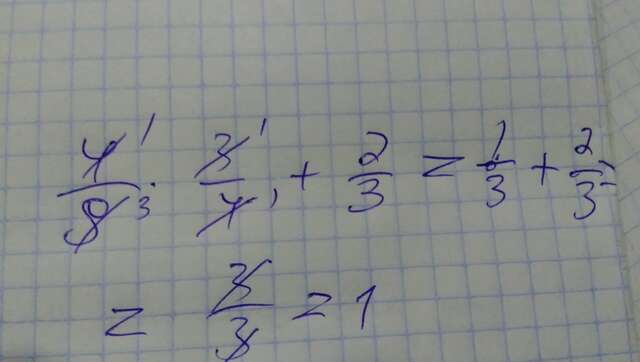 4¹/9₃ · 3¹/4₁ + 2/3 = 1/3 + 2/3 =
= 3/3 = 1